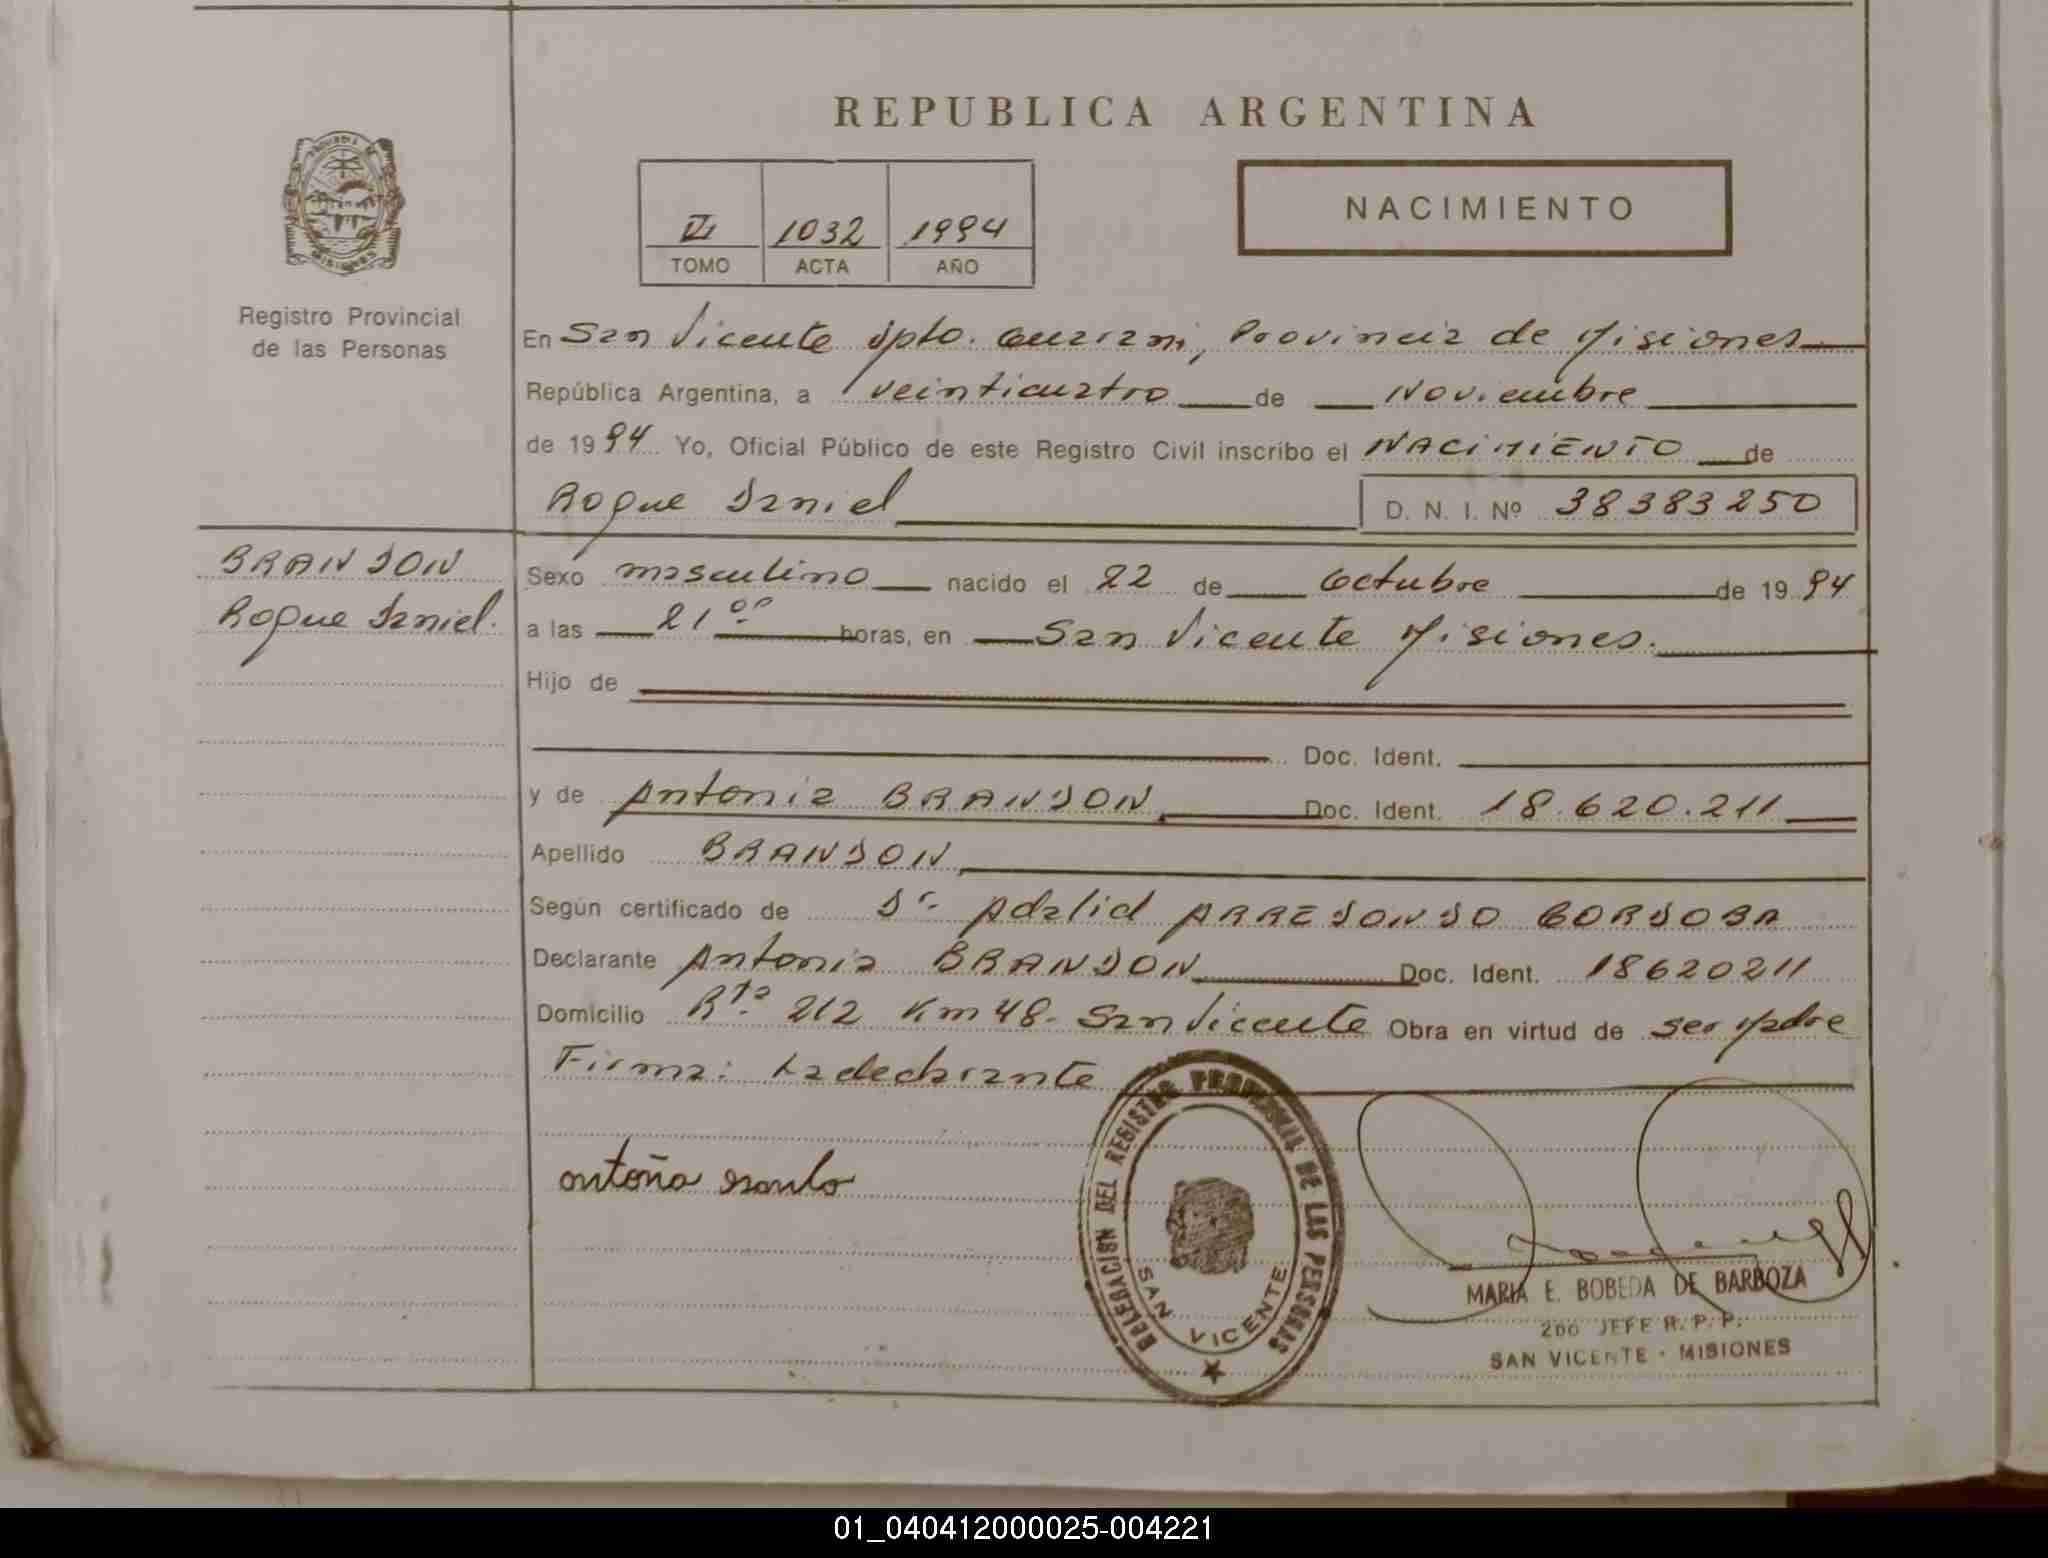 REPUBLICA ARGENTINA
PROVINCIA DE
MISIONES
Registro Provincial
de las Personas
VI 1032 1994
TOMO ACTA AÑO
NACIMIENTO
En San Vicente Dpto. Guarani, Provincia de Misiones
República Argentina, a veinticuatro de Noviembre
de 1994 Yo, Oficial Público de este Registro Civil inscribo el NACIMIENTO de
Roque Daniel D. N. I. Nº 38383250
BRANDON
Roque Daniel.
Sexo masculino nacido el 22 de Octubre de 1994
a las 21ºº horas, en San Vicente Misiones.
Hijo de
Doc. Ident.
y de Antonia BRANDON Doc. Ident. 18.620.211
Apellido BRANDON
Según certificado de Dr. Adalid ARREDONDO CORDOBA
Declarante Antonia BRANDON Doc. Ident. 18620211
Domicilio Rta. 212 Km 48- San Vicente Obra en virtud de ser Madre
Firma: La declarante
DELEGACION DEL REGISTRO PROVINCIAL DE LAS PERSONAS
SAN VICENTE
MARIA E. BOBEDA DE BARBOZA
2DO JEFE R. P. P.
SAN VICENTE - MISIONES
01_040412000025-004221